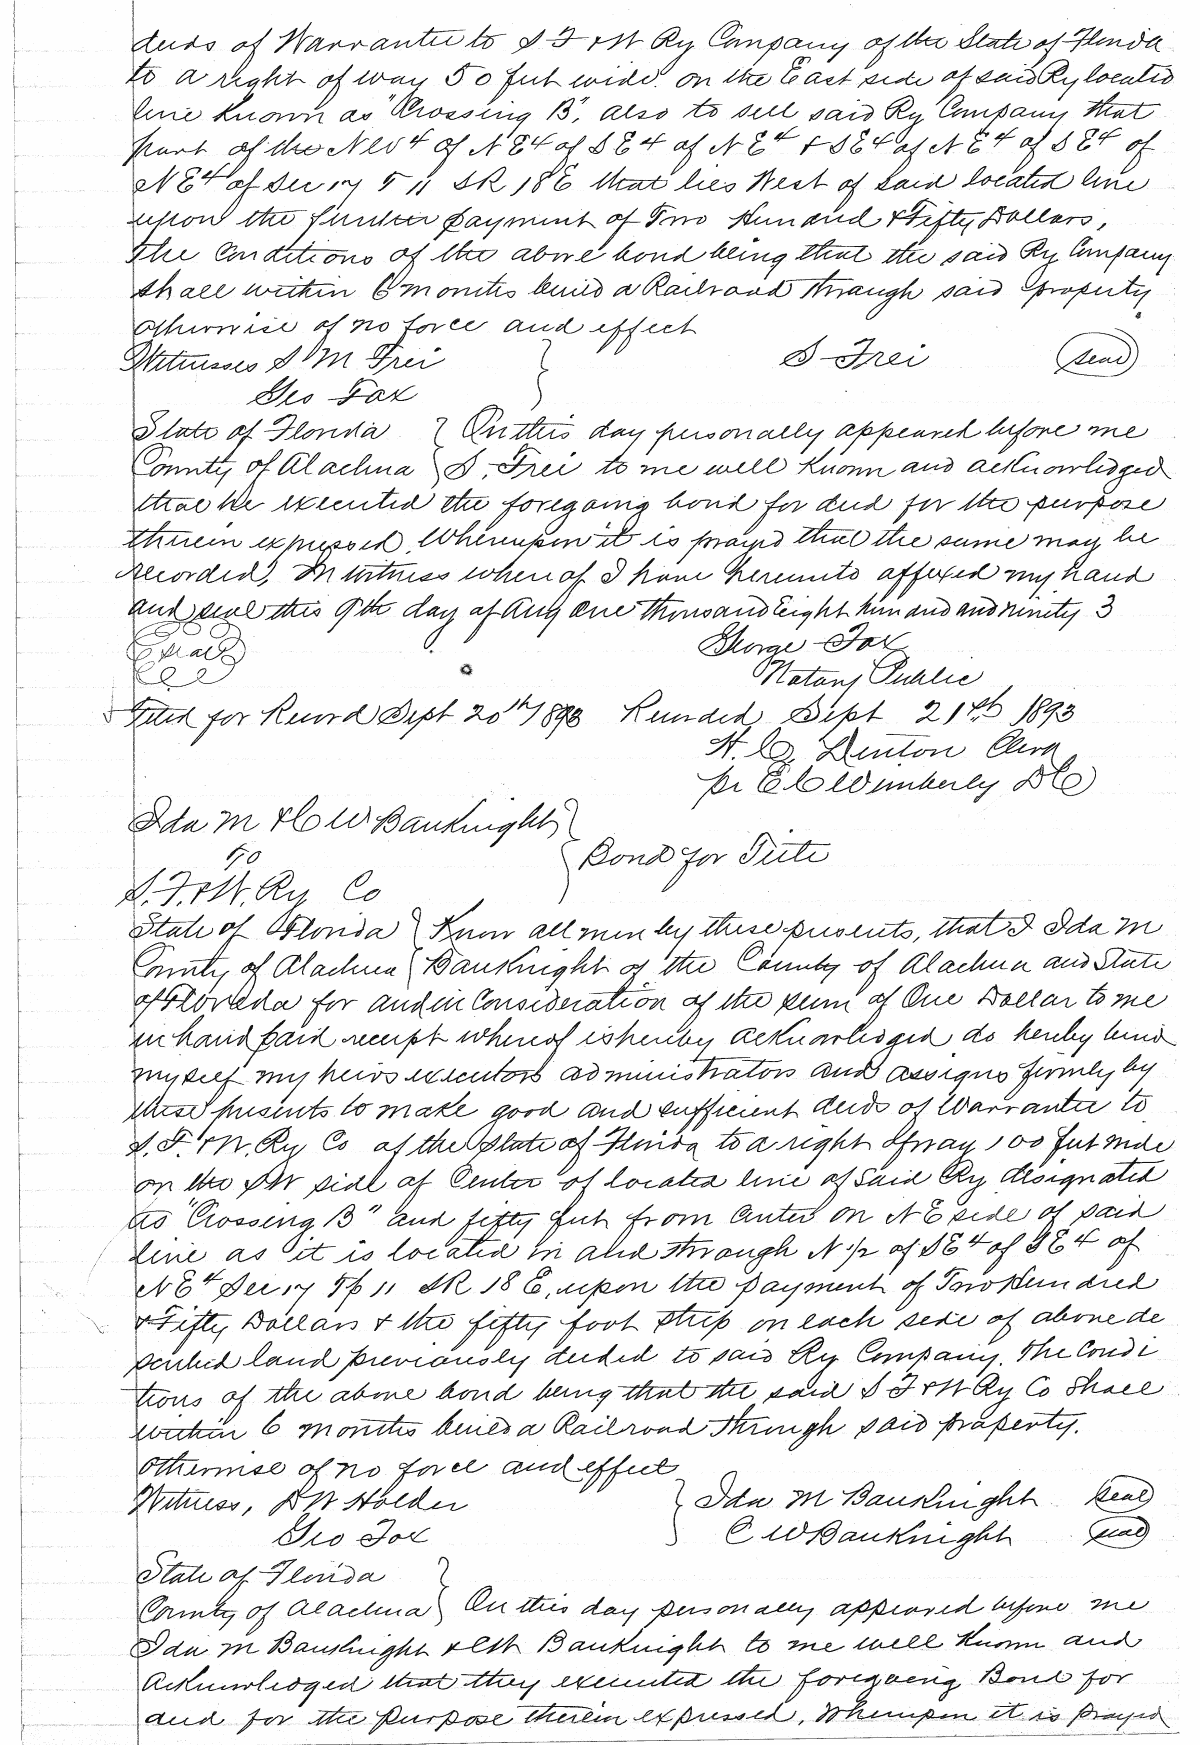 deeds of Warrantee to S F & W Ry Company of the State of Florida
to a right of way 50 feet wide on the East side of said Ry located
line known as "Crossing B", also to sell said Ry Company that
part of the NW4 of NE4 of SE4 of NE4 & SE4 of NE4 of SE4 of
NE4 of Sec 17 T 11 SR 18E that lies West of said located line
upon the further payment of Two Hundred & Fifty Dollars,
The Conditions of the above bond being that the said Ry Company
shall within 6 months build a Railroad through said property
otherwise of no force and effect
Witnesses S M Frei } S Frei (seal)
Geo Fox
State of Florida } On this day personally appeared before me
County of Alachua } S. Frei to me well known and acknowledged
that he executed the foregoing bond for deed for the purpose
therein expressed. Whereupon it is prayed that the same may be
recorded, In witness whereof I have hereunto affixed my hand
and seal this 9th day of Aug one thousand Eight hundred and ninety 3
(Seal) George Fox
Notary Public
Filed for Record Sept 20th 1893 Recorded Sept 21th 1893
H. C. Denton Clerk
pr E C Wimberly D C
Ida M & C W Bauknight }
to } Bond for Title
S. F. & W. Ry Co
State of Florida } Know all men by these presents, that I Ida M
County of Alachua } Bauknight of the County of Alachua and State
of Florida for and in Consideration of the sum of One Dollar to me
in hand paid receipt whereof is hereby acknowledged do hereby bind
myself my heirs executors administrators and assigns firmly by
these presents to make good and sufficient deeds of Warrantee to
S. F. & W. Ry Co of the State of Florida to a right of way 100 feet wide
on the SW side of Center of located line of said Ry designated
as "Crossing B" and fifty feet from center on NE side of said
line as it is located in and through N 1/2 of SE4 of SE4 of
NE4 Sec 17 Tp 11 SR 18 E, upon the payment of Two Hundred
& Fifty Dollars & the fifty foot strip on each side of above de
scribed land previously deeded to said Ry Company. The Condi
tions of the above bond being that the said S F & W Ry Co shall
within 6 months build a Railroad through said property.
otherwise of no force and effect
Witness, D W Holder } Ida M Bauknight (seal)
Geo Fox } C W Bauknight (seal)
State of Florida }
County of Alachua } On this day personally appeared before me
Ida M Bauknight & C W Bauknight to me well known and
Acknowledged that they executed the foregoing Bond for
deed for the purpose therein expressed. Whereupon it is prayed